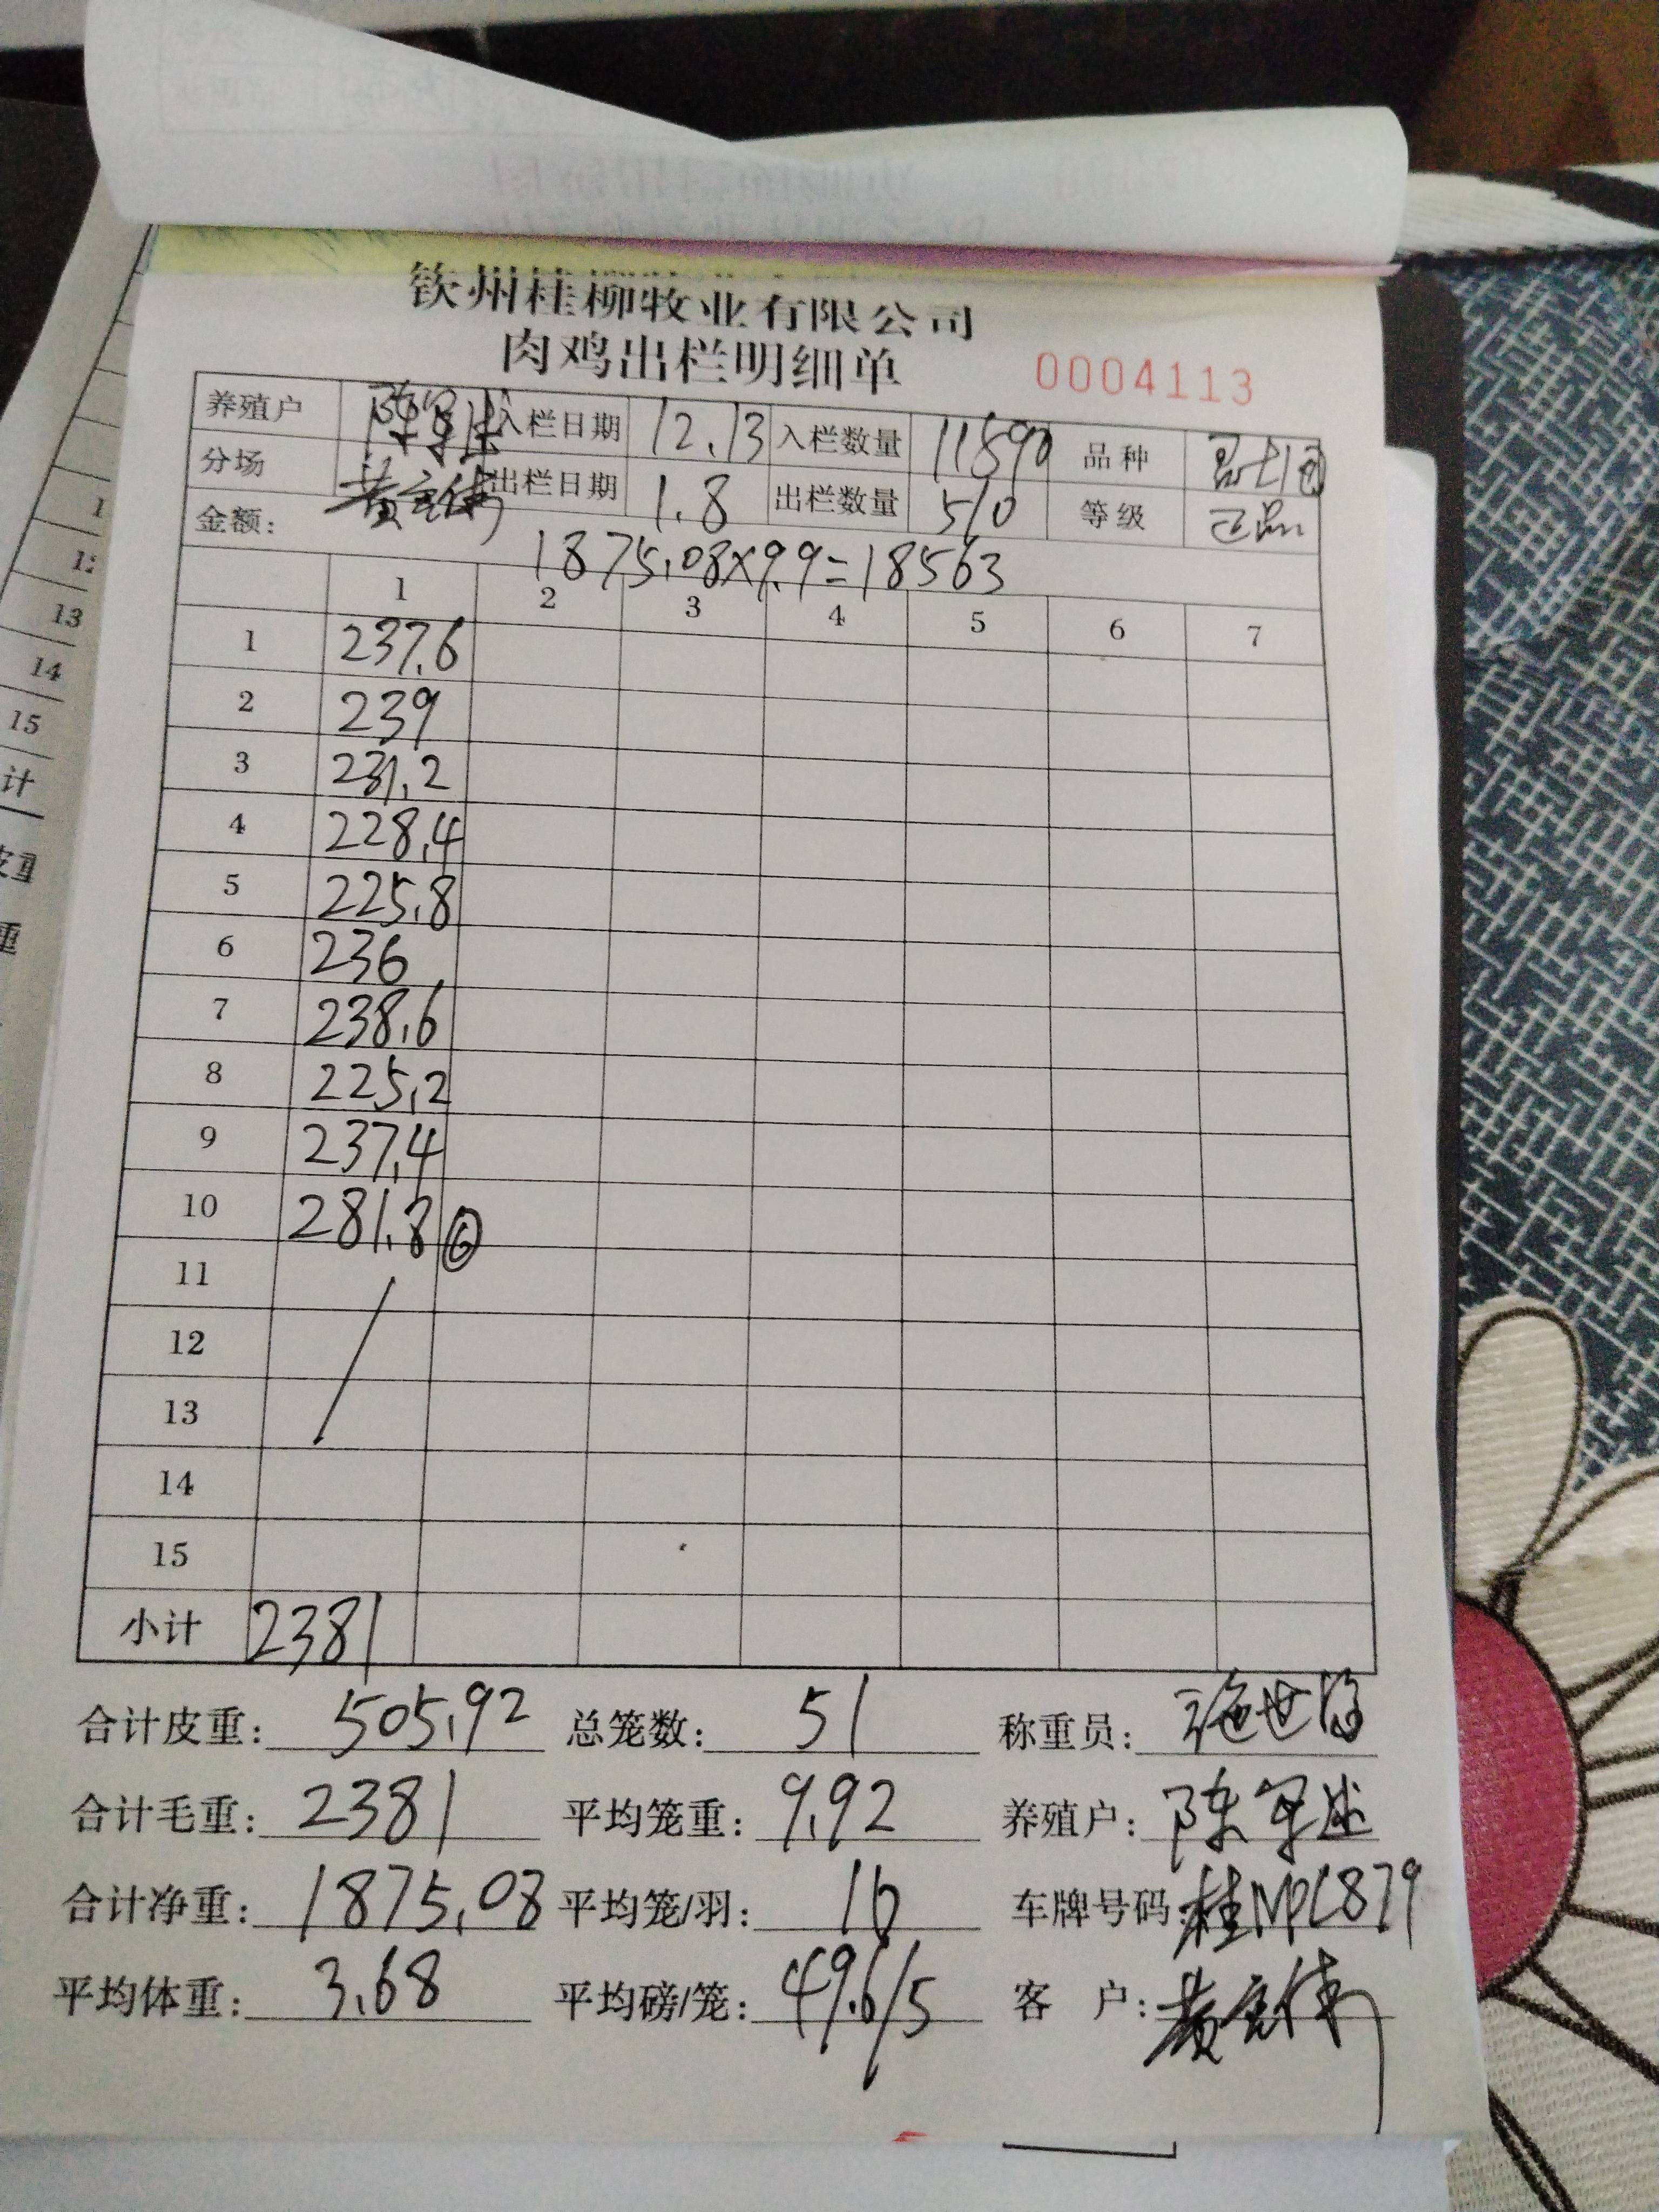 钦州桂柳牧业有限公司
肉鸡出栏明细单 0004113
养殖户 入栏日期 12.13 入栏数量 11590 品种
分场 出栏日期 1.8 出栏数量 510 等级 正品
金额: 1875.08×9.9=18563
1 2 3 4 5 6 7
1 237.6
2 239
3 231.2
4 228.4
5 225.8
6 236
7 238.6
8 225.2
9 237.4
10 281.8 ⑥
11
12
13
14
15
小计 2381
合计皮重: 505.92 总笼数: 51 称重员:
合计毛重: 2381 平均笼重: 9.92 养殖户: 陈军
合计净重: 1875.08 平均笼/羽: 10 车牌号码: 桂
平均体重: 3.68 平均磅/笼: 49.6/5 客 户: 黄
13
14
15
计
皮重
重